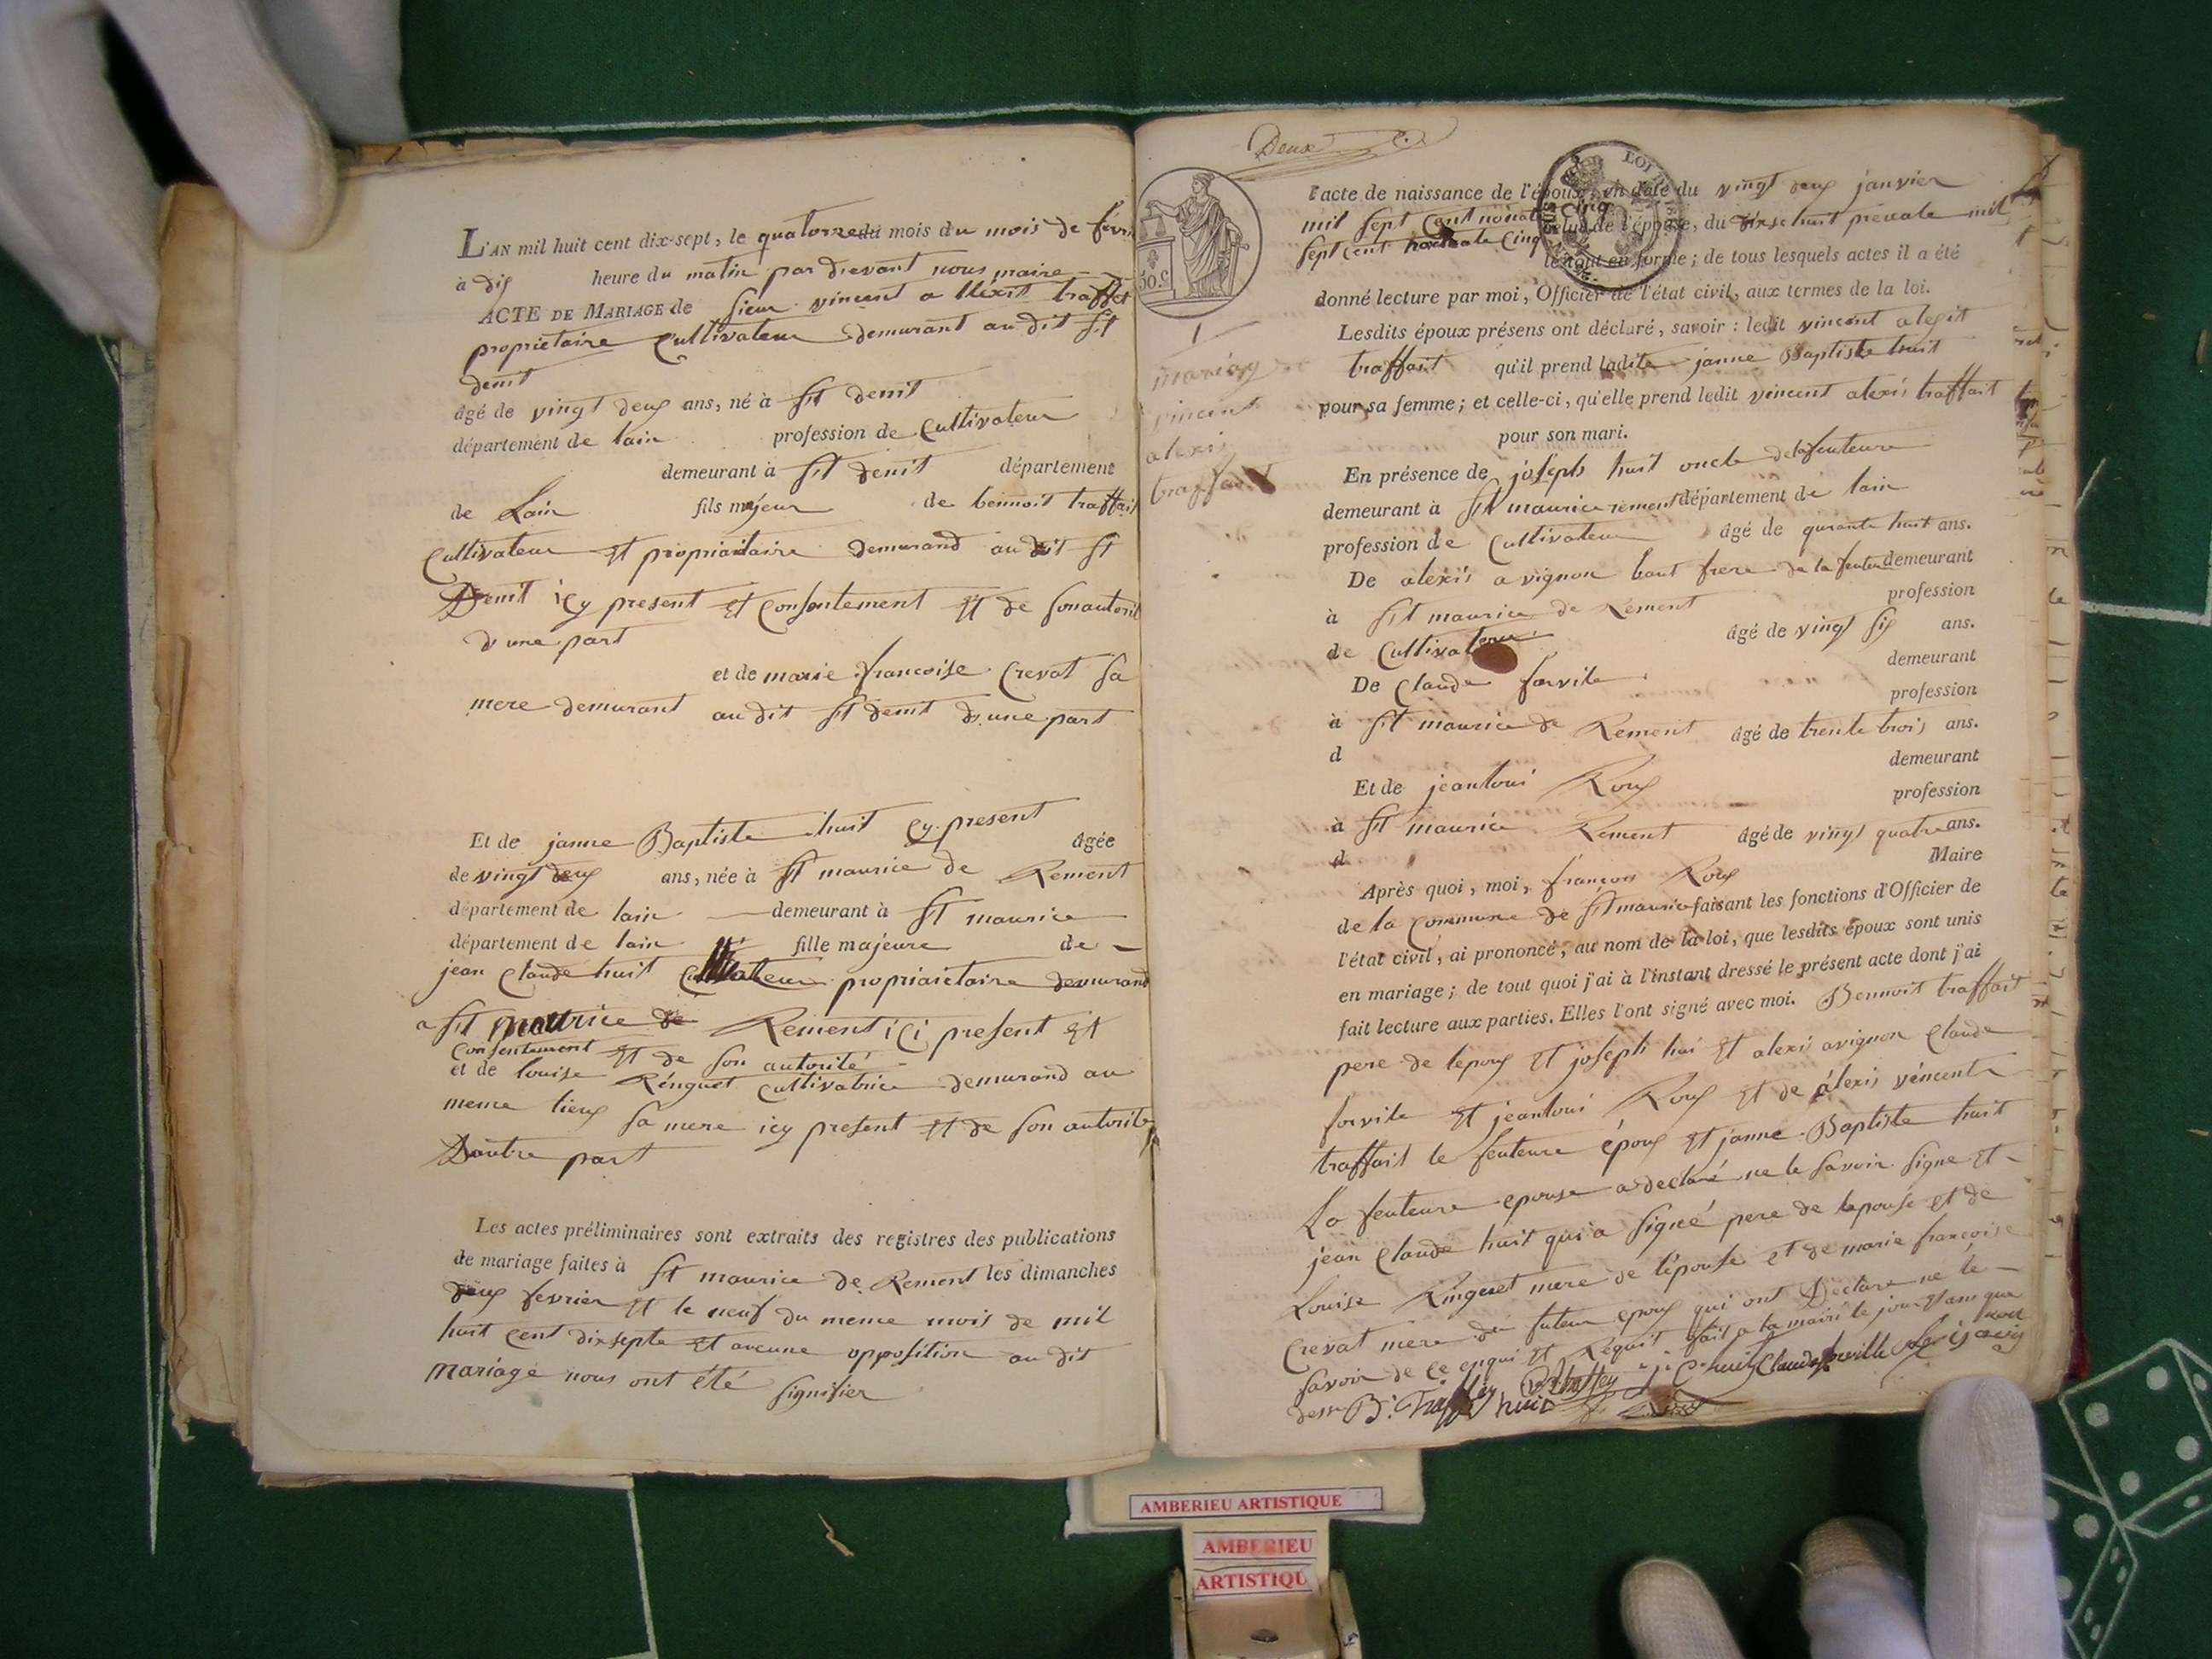 L'AN mil huit cent dix-sept, le quatorze du mois du mois de fevri
à dix heure du matin par devant nous maire
ACTE DE MARIAGE de sieur vincent a lléxit traffet
propriétaire cultivateur demurant au dit st
denit
âgé de vingt deux ans, né à st denit
département de lain profession de cultivateur
demeurant à st denit département
de Lain fils majeur de bennoit traffait
cultivateur et propriaitaire demurand au dit st
Denit icy present et consentement et de son autorité
d'une part
et de marie francoise Crevat sa
mere demurant au dit st denit d'une part
Et de janne Baptiste huit cy present âgée
de vingt deux ans, née à st maurice de Rement
département de lain demeurant à st maurice
département de lain fille majeure de
jean claude huit cultivateur propriaietaire demurand
a st maurice de Rement ici present et
consentement et de son autorité
et de louise Renguet cultivatrice demurand au
meme lieux sa mere icy present et de son autorité
D'autre part
Les actes préliminaires sont extraits des registres des publications
de mariage faites à st maurice de Rement les dimanches
deux fevrier et le neuf du meme mois de mil
huit cent dix septe et aucune opposition au dit
mariage nous ont été signifier
Deux
50.C
1
mariage
vincent
alexis
traffait
l'acte de naissance de l'époux, en date du vingt deux janvier
mil sept cent nonante cinq
celui de l'épouse, du dixse huit preuale mil
sept cent nonante cinq
le tout en forme; de tous lesquels actes il a été
donné lecture par moi, Officier de l'état civil, aux termes de la loi.
Lesdits époux présens ont déclaré, savoir : ledit vincent alexit
traffait qu'il prend ladite janne Baptiste huit
pour sa femme; et celle-ci, qu'elle prend ledit vincent alexis traffait
pour son mari.
En présence de joseph huit oncle de la feuteure
demeurant à st maurice rement département de lain
profession de cultivateur âgé de quarante huit ans.
De alexis avignon baut frere de la feuteu demeurant
à st maurice de Rement profession
de cultivateur âgé de vingt six ans.
De claude forvile demeurant
à st maurice de Rement profession
d âgé de trente trois ans.
Et de jeanloui Roux demeurant
à st maurice Rement profession
d âgé de vingt quatre ans.
Après quoi, moi, françois Roux Maire
de la commune de st maurice faisant les fonctions d'Officier de
l'état civil, ai prononcé, au nom de la loi, que lesdits époux sont unis
en mariage; de tout quoi j'ai à l'instant dressé le présent acte dont j'ai
fait lecture aux parties. Elles l'ont signé avec moi. Bennoit traffait
pere de lepoux et joseph hui et alexis avignon claude
forvile et jeanloui Roux et de alexis vincent
traffait le feuteure époux et janne Baptiste huit
La feuteure epouse a declaré ne le savoir signe et
jean claude huit qui a signé pere de lepouse et de
Louise Ringuet mere de l'épouse et de marie francoise
Crevat mere du futeur epoux qui ont Declare ne le
savoir de ce enqui et Requit fait a la mairi le jour et an que
dessu B. Traffey huit j. C. huit Claude forville
AMBERIEU ARTISTIQUE
AMBERIEU
ARTISTIQU